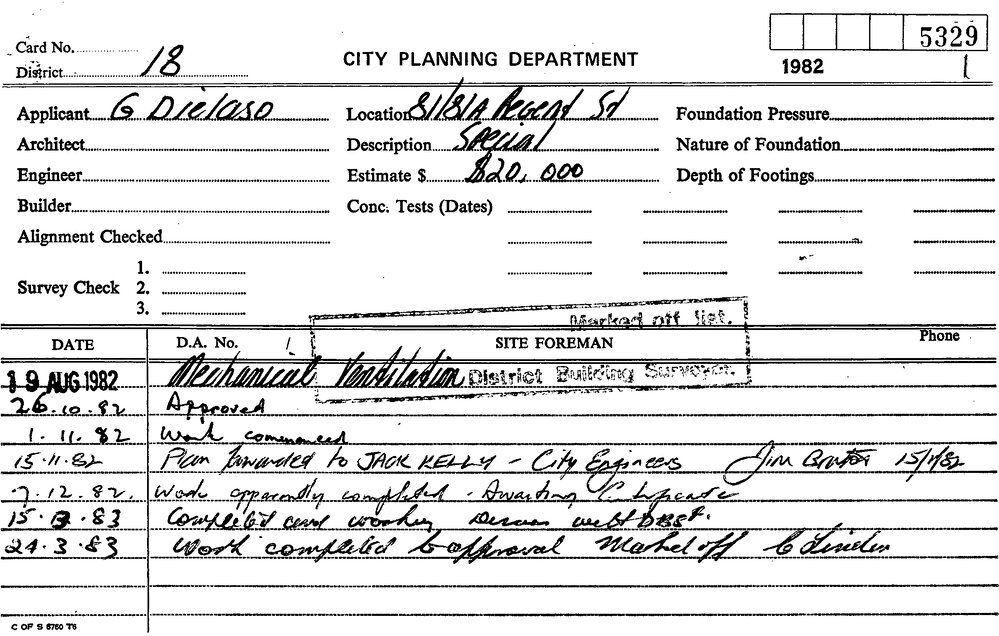 Card No. 5329
District 18 CITY PLANNING DEPARTMENT 1982 1
Applicant G Dielaso Location 81/81A Regent St Foundation Pressure
Architect Description Special Nature of Foundation
Engineer Estimate $ $20,000 Depth of Footings
Builder Conc. Tests (Dates)
Alignment Checked
1.
Survey Check 2.
3.
Marked off list.
DATE D.A. No. SITE FOREMAN Phone
19 AUG 1982 Mechanical Ventilation District Building Surveyor.
26.10.82 Approved
1.11.82 Work commenced
15.11.82 Plan forwarded to JACK KELLY - City Engineers Jim 15/11/82
7.12.82. Work apparently completed - Awaiting Certificate
15.3.83 Completed and working
24.3.83 Work completed to approval Marked off
C OF S 6760 T6